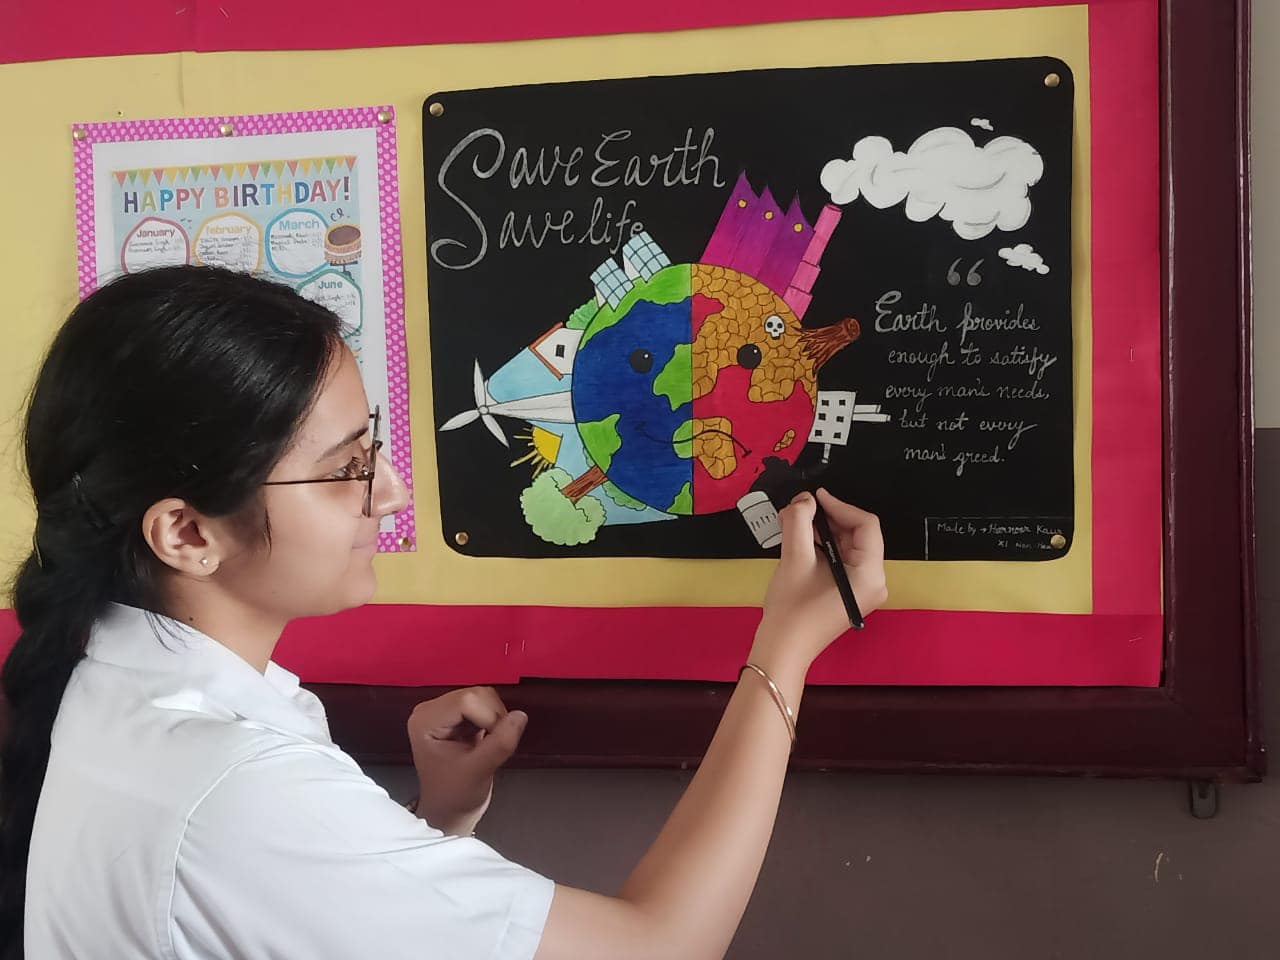 HAPPY BIRTHDAY!
January
February
March
June
Save Earth
Save life
“
Earth provides
enough to satisfy
every man's needs,
but not every
man's greed.
Made by → Kaur
XI